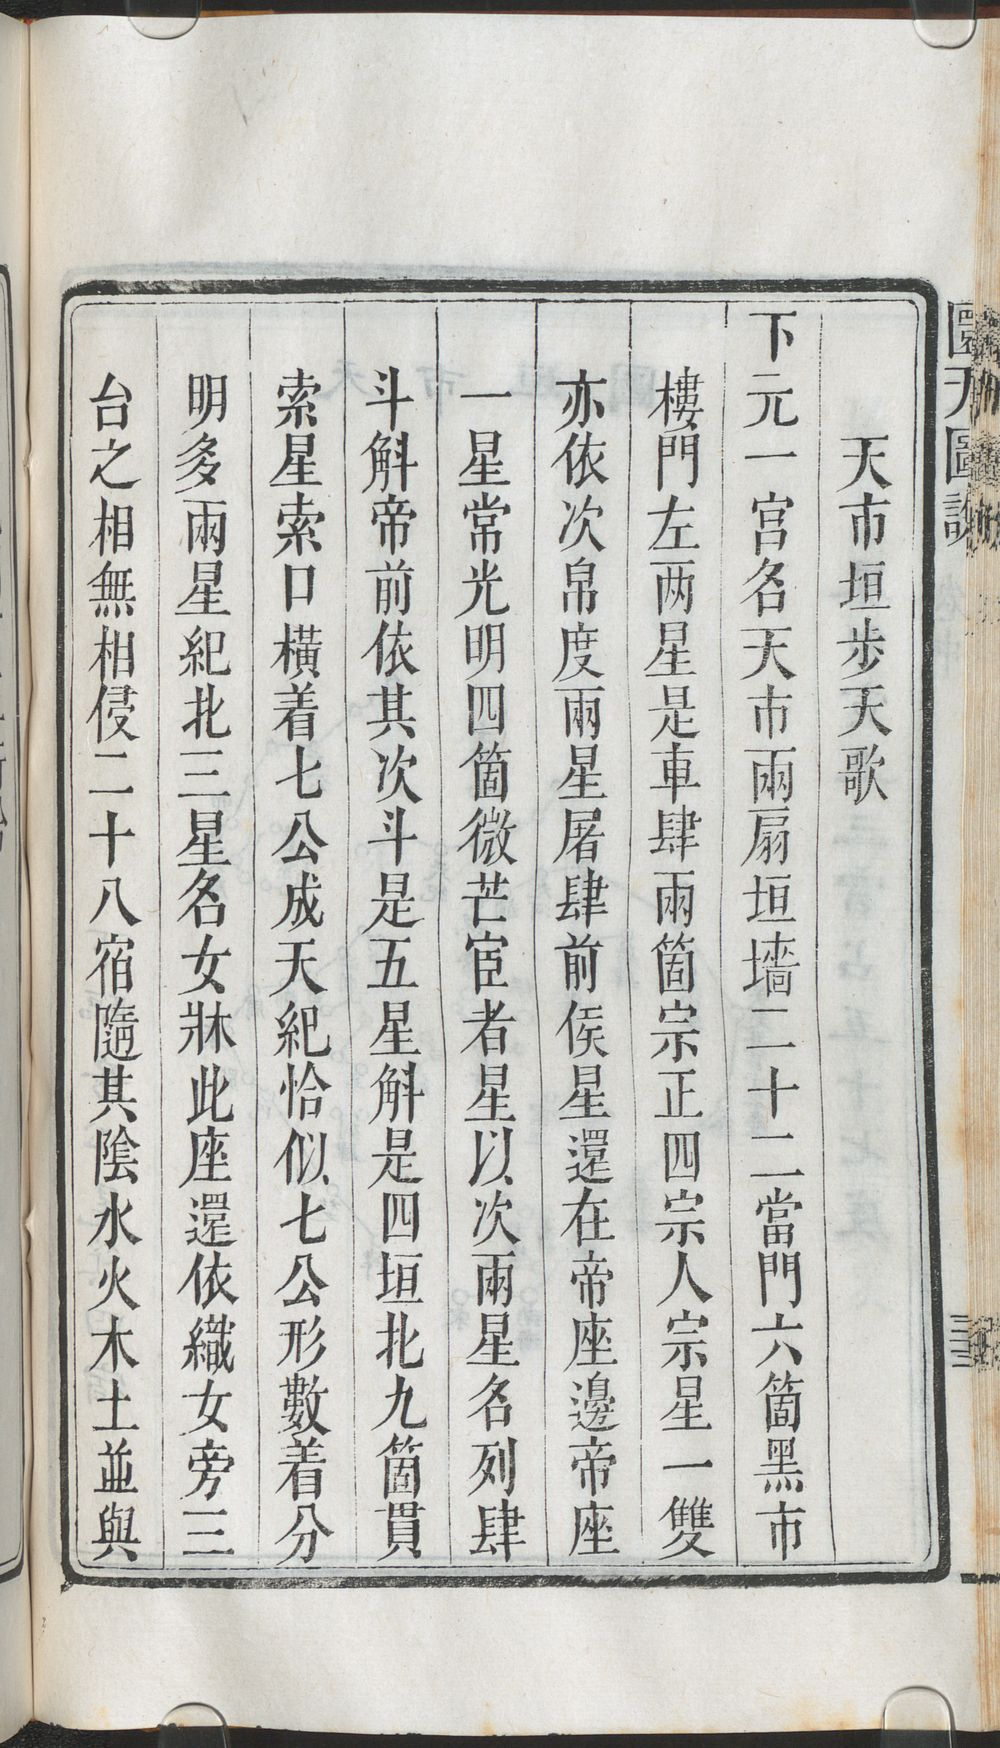 天市垣步天歌
下元一宮名天市兩扇垣墻二十二當門六箇黑市
樓門左两星是車肆兩箇宗正四宗人宗星一雙
亦依次帛度兩星屠肆前侯星還在帝座邊帝座
一星常光明四箇微芒宦者星以次兩星名列肆
斗斛帝前依其次斗是五星斛是四垣北九箇貫
索星索口橫着七公成天紀恰似七公形數着分
明多兩星紀北三星名女牀此座還依織女旁三
台之相無相侵二十八宿隨其陰水火木土並與